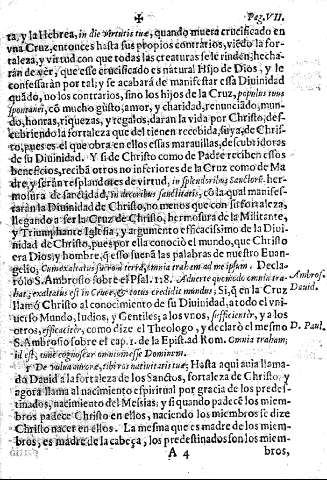 ✠ Pag. VII.
ta, y la Hebrea, in die virtutis tuæ, quando muera crucificado en
vna Cruz, entonces hasta sus propios contrarios, viẽdo la for-
taleza, y virtud con que todas las creaturas se le rinden, hecha-
ràn de vèr, que esse crucificado es natural Hijo de Dios, y le
confessaràn por tal; y se acabarà de manifestar essa Diuinidad
quãdo, no los contrarios, sino los hijos de la Cruz, populus tuus
spontanei, cõ mucho gusto, amor, y charidad, renunciãdo, mun-
do, honras, riquezas, y regalos, daràn la vida por Christo, des-
cubriendo la fortaleza que del tienen recebida, suya, de Chris-
to, pues es el que obra en ellos essas marauillas, descubridoras
de su Diuinidad. Y si de Christo como de Padre reciben essos
beneficios, recibã otros no inferiores de la Cruz como de Ma-
dre, y seràn resplandores de virtud, in splendoribus Sanctorũ. her-
mosura de santidad, in decoribus sanctitatis, cõ la qual manifes-
taràn la Diuinidad de Christo, no menos que con su fortaleza,
llegando a ser la Cruz de Christo, hermosura de la Militante,
y Triumphante Iglesia, y argumento efficacissimo de la Diui-
nidad de Christo, pues por ella conociò el mundo, que Christo
era Dios, y hombre, q̃ esso suenã las palabras de nuestro Euan-
gelio; Cum exaltatus fuero à terra, omnia traham ad me ipsum. Decla-
ròlo S. Ambrosio sobre el Psal. 118. Aduerte quemodo omnia tra-
hat; exaltatus est in Cruce, & totus credidit mundus; Si, q̃ en la Cruz
llamò Christo al conocimiento de su Diuinidad, a todo el vni-
uerso Mundo, Iudios, y Gentiles; a los vnos, sufficientèr, y a los
otros, efficacitèr, como dize el Theologo, y declarò el mesmo
S. Ambrosio sobre el cap. 1. de la Epist. ad Rom. Omnia traham;
id est,
Ambros.
Dauid.
D. Paul.
Hasta aqui auia llama-
do Dauid a la fortaleza de los Santos, fortaleza de Christo, y
agora llama al nacimiento espiritual por gracia de los predes-
tinados, nacimiento del Messias; y si quando padecẽ los miem-
bros padece Christo en ellos, naciendo los miembros se dize
Christo nacer en ellos. La mesma que es madre de los miem-
bros, es madre de la cabeça, los predestinados son los miem-
A 4 bros,